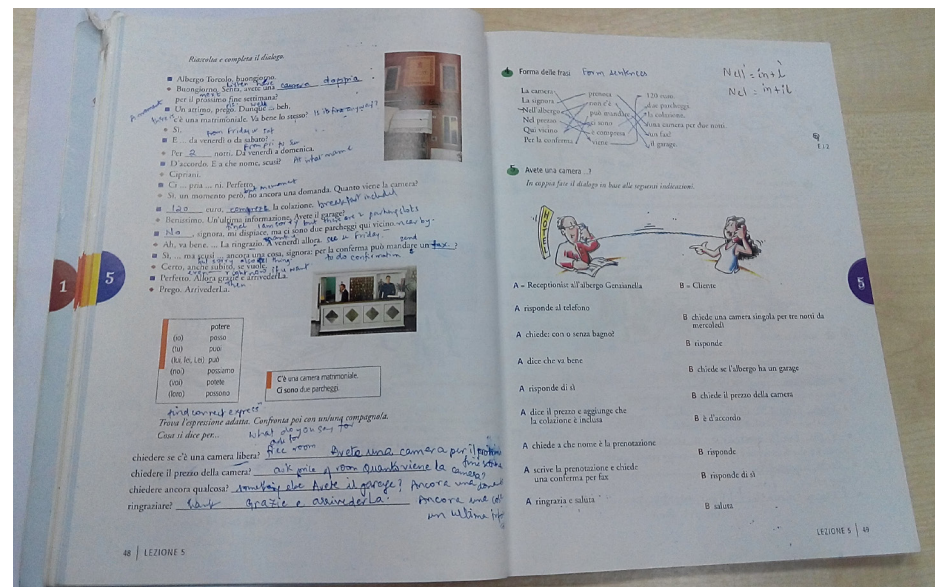 Riascolta e completa il dialogo.
Albergo Torcolo, buongiorno.
Buongiorno. Senta, avete una camera doppia
per il prossimo fine settimana?
Un attimo, prego. Dunque ... beh,
A moment
c'è una matrimoniale. Va bene lo stesso?
Sì.
E ... da venerdì o da sabato?
Per 2 notti. Da venerdì a domenica.
D'accordo. E a che nome, scusi? At what name
Cipriani.
Ci ... pria ... ni. Perfetto.
Sì, un momento però, ho ancora una domanda. Quanto viene la camera?
120 euro, compresa la colazione. breakfast included
Benissimo. Un'ultima informazione. Avete il garage?
No, signora, mi dispiace, ma ci sono due parcheggi qui vicino near by.
Ah, va bene. ... La ringrazio. A venerdì allora.
Sì, ... ma scusi ... ancora una cosa, signora: per la conferma può mandare un fax?
to do confirmation
Certo, anche subito, se vuole.
Perfetto. Allora grazie e arrivederLa.
then
Prego. ArrivederLa.
1
5
potere
(io) posso
(tu) puoi
(lui, lei, Lei) può
(noi) possiamo
(voi) potete
(loro) possono
C'è una camera matrimoniale.
Ci sono due parcheggi.
find correct express
Trova l'espressione adatta. Confronta poi con un/una compagno/a.
Cosa si dice per... What do you say for
ask for
chiedere se c'è una camera libera? free room Avete una camera per il
chiedere il prezzo della camera? ask price of room Quanto viene la camera?
chiedere ancora qualcosa? something else Avete il garage? Ancora una
ringraziare? Grazie e arrivederLa. Ancora una
un ultima
48 | LEZIONE 5
Forma delle frasi Form sentences
Nell' = in + l'
Nel = in + il
La camera prenota 120 euro.
La signora non c'è due parcheggi.
Nell'albergo può mandare la colazione.
Nel prezzo ci sono una camera per due notti.
Qui vicino è compresa un fax?
Per la conferma viene il garage.
5 Avete una camera ...?
In coppia fate il dialogo in base alle seguenti indicazioni.
HOTEL
A = Receptionist all'albergo Genzianella
B = Cliente
A risponde al telefono
B chiede una camera singola per tre notti da
mercoledì
A chiede: con o senza bagno?
B risponde
A dice che va bene
B chiede se l'albergo ha un garage
A risponde di sì
B chiede il prezzo della camera
A dice il prezzo e aggiunge che
la colazione è inclusa
B è d'accordo
A chiede a che nome è la prenotazione
B risponde
A scrive la prenotazione e chiede
una conferma per fax
B risponde di sì
A ringrazia e saluta
B saluta
5
LEZIONE 5 | 49